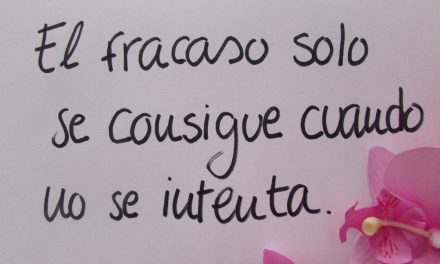 El fracaso solo
se consigue cuando
no se intenta.